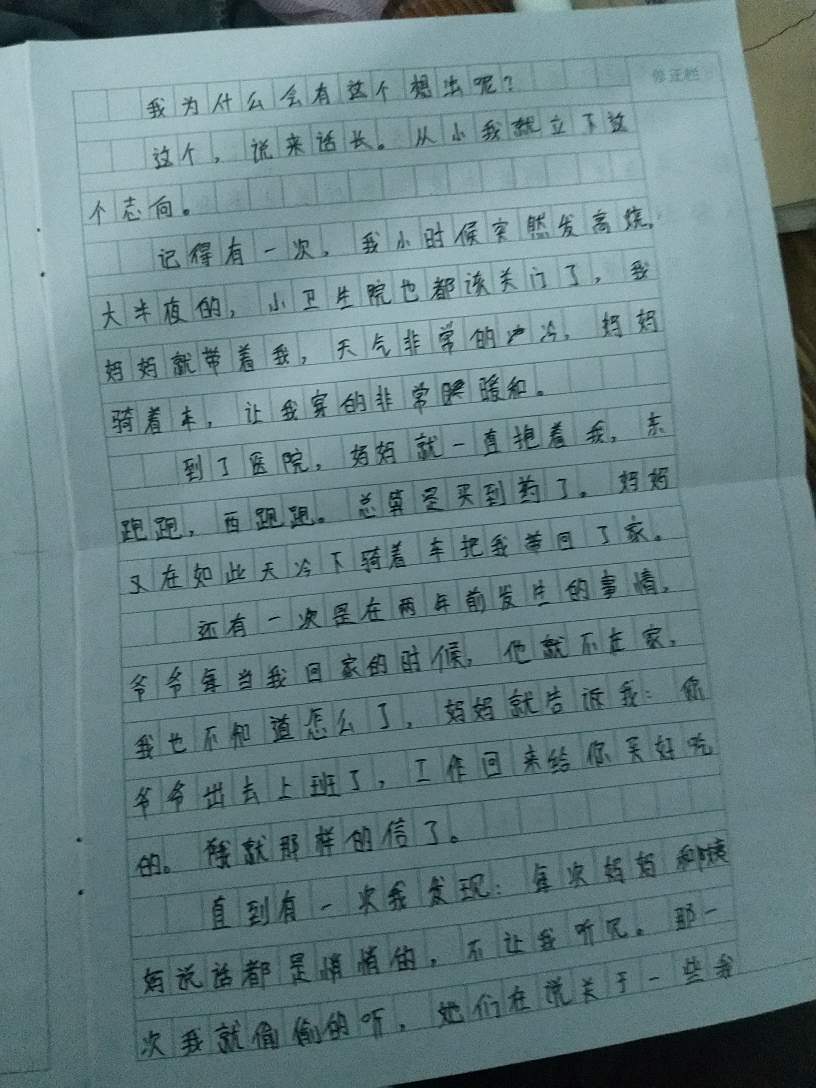 修正栏
我为什么会有这个想法呢？
这个，说来话长。从小我就立下这
个志向。
记得有一次，我小时候突然发高烧，
大半夜的，小卫生院也都该关门了，我
妈妈就带着我，天气非常的冷，妈妈
骑着车，让我穿的非常暖和。
到了医院，妈妈就一直抱着我，东
跑跑，西跑跑。总算是买到药了。妈妈
又在如此天冷下骑着车把我带回了家。
还有一次是在两年前发生的事情，
爷爷每当我回家的时候，他就不在家，
我也不知道怎么了，妈妈就告诉我：你
爷爷出去上班了，工作回来给你买好吃
的。我就那样的信了。
直到有一次我发现：每次妈妈和姨
妈说话都是悄悄的，不让我听见。那一
次我就偷偷的听，她们在说关于一些我